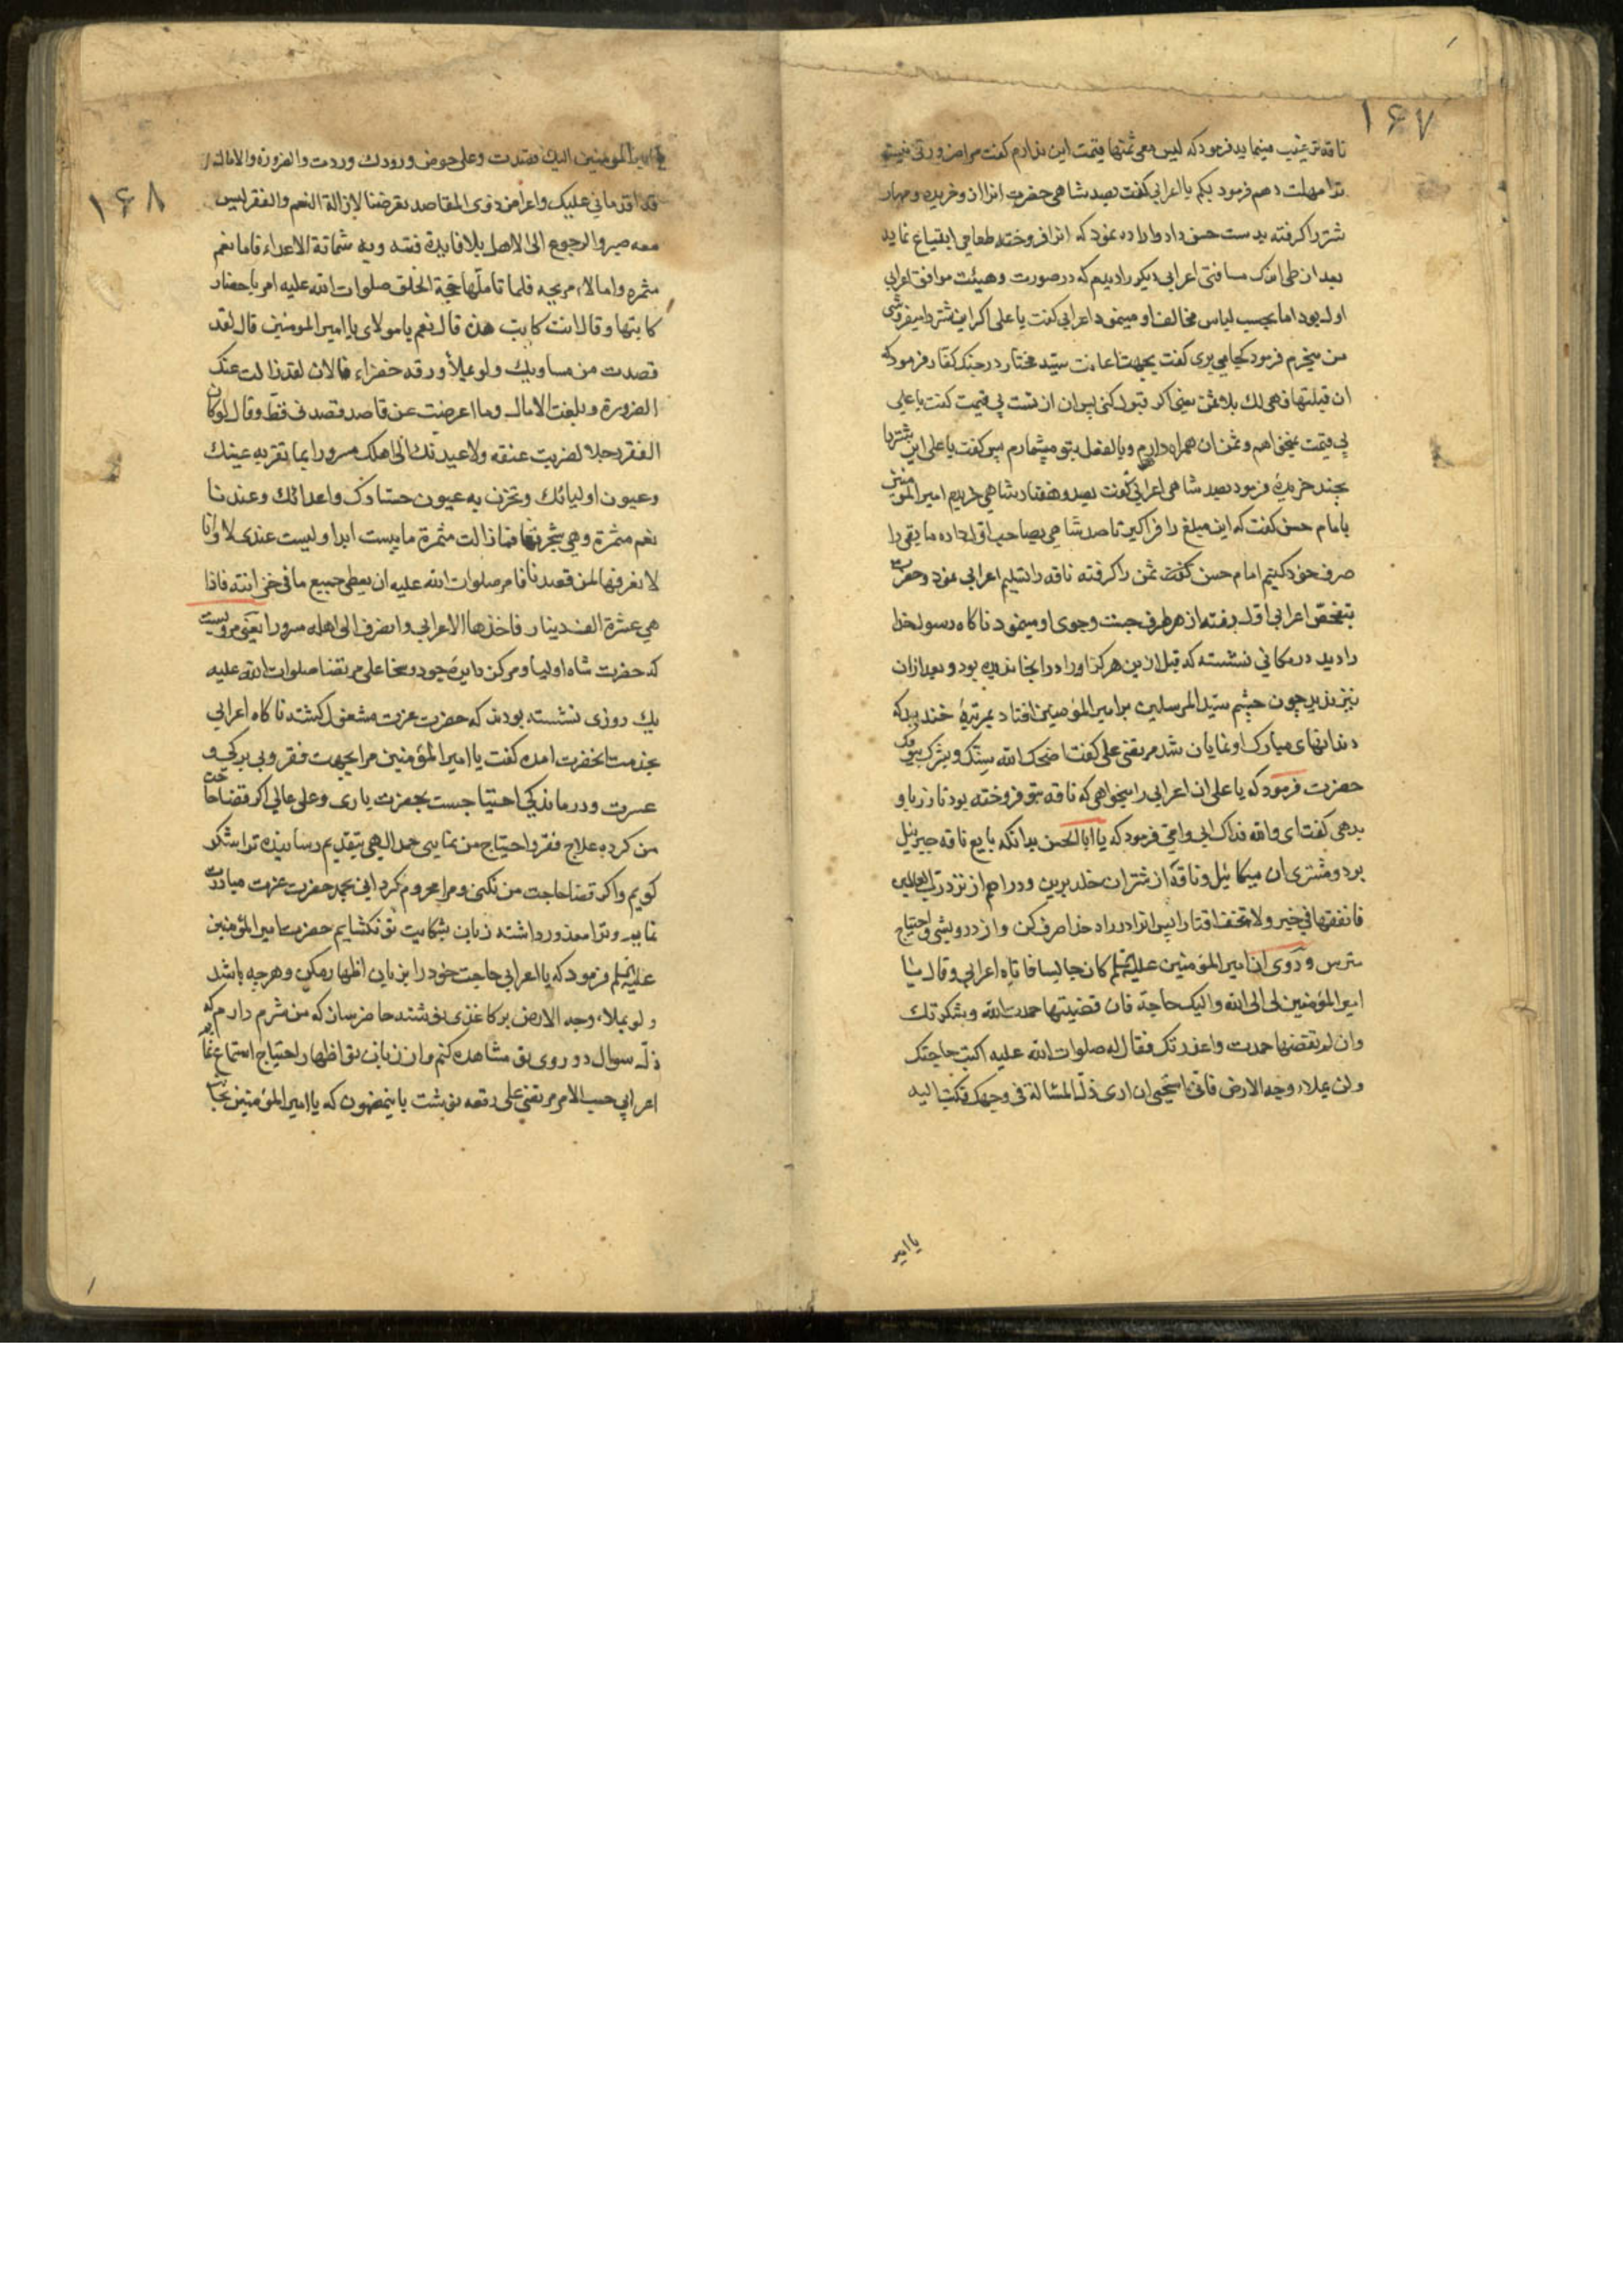 ۱۶۷
ناقه ترغیب مینماید فرمود که لیس معی ثمنها قیمت این ندارم کفت مرا
ترا مهلت دهم فرمود بکم یا اعرابی کفت بصد شاهی حضرت انرا از و خریده و مهار
شتر را کرفته بدست حسن داد و اراده نمود که انرا فروخته طعامی ابتیاع نماید
بعد از طی اندک مسافتی اعرابی دیکر را دیدم که در صورت و هیئت موافق اعرابی
اول بود اما بحسب لباس مخالف او مینمود اعرابی کفت یا علی اکر این شتر را میفروشی
من میخرم فرمود کجا میبری کفت بجهت اعانت سید مختار در جنک کفار فرمود که
ان قبلتها فهی لک بلا ثمن یعنی اکر قبول کنی پس ان از تست بی قیمت کفت یا علی
بی قیمت نمیخواهم و ثمن ان همراه دارم و بالفعل بتو میشمارم پس کفت یا علی این شتر را
بچند خریدهٔ فرمود بصد شاهی اعرابی کفت بصد و هفتاد شاهی خریدم امیر المومنین
بامام حسن کفت که این مبلغ را فراکیر تا صد شاهی بصاحب اول داده ما بقی را
صرف خود کنیم امام حسن کفت ثمن را کرفته ناقه را تسلیم اعرابی نمود و حضرت
بتفحص اعرابی اول رفته از هر طرف جست و جوی او مینمود ناکاه رسول خدا
را دید در مکانی نشسته که قبل ازین هرکز او را در انجا ندیده بود و بعد ازان
نیز ندید چون چشم سید المرسلین بر امیر المومنین افتاد بمرتبهٔ خندید که
دندانهای مبارک او نمایان شد مرتضی علی کفت اضحک الله سنک و بشرک بیومک
حضرت فرمود که یا علی ان اعرابی را میخواهی که ناقه بتو فروخته بود تا زر باو
بدهی کفت ای والله فداک ابی و امی فرمود که یا ابا الحسن بدانکه بایع ناقه جبرئیل
بود و مشتری ان میکائیل و ناقه از شتران خلد برین و دراهم از نزد رب العالمین
فانفقها فی خیر ولا تخف اقتارا پس انرا در راه خدا صرف کن و از درویشی و احتیاج
مترس و روی ان امیر المومنین علیه السلم کان جالسا فاتاه اعرابی و قال یا
امیر المومنین لی الی الله و الیک حاجة فان قضیتها حمدت الله و شکرتک
وان لم تقضها حمدت واعذرتک فقال له صلوات الله علیه اکتب حاجتک
ولن یملاء وجه الارض فانی استحیی ان اری ذل المسالة فی وجهک فکتب الیه
یا امیر
۱۶۸
یا امیر المومنین الیک قصدت وعلی حوض ورودک وردت والضرورة والامال
قد اقدمانی علیک واعرا من ذوی المقاصد تقرضنا لازالة النعم والفقر لیس
معه صبر والرجوع الی الاهل بلا فایدة فتنه وبه شماتة الاعداء فاما نعم
مثمره واما لاء مریحه فلما تاملها حجة الخلق صلوات الله علیه امر باحضار
کاتبها وقال انت کاتب هذه قال نعم یا مولای یا امیر المومنین قال لقد
قصدت من مساویک ولو یملأ ورقه خضراء فالان لقد زالت عنک
الضرورة وبلغت الامال وما اعرضت عن قاصد قصدنی قط وقال لو کان
الفقر رجلا لضربت عنقه ولا عیدنک الی اهلک مسرورا بما تقر به عینک
وعیون اولیائک وتحزن به عیون حسادک واعدائک وعندنا
نعم مثمرة وهی شجرتها فما زالت مثمرة ما یبست ابدا ولیست عندی لا وانا
لا نعرفها لمن قصدنا فامر صلوات الله علیه ان یعطی جمیع ما فی خزانته فاذا
هی عشرة الف دینار فاخذها الاعرابی وانصرف الی اهله مسرورا یعنی مرویست
که حضرت شاه اولیا و مرکز دایرهٔ جود و سخا علی مرتضا صلوات الله علیه
یک روزی نشسته بودند که حضرت عزت مشعوف کشته ناکاه اعرابی
بخدمت انحضرت امده کفت یا امیر المومنین مرا بجهت فقر و بی برکی و
عسرت و درماندکی احتیاجست بحضرت باری و علی عالی اکر قضا حاجت
من کرده علاج فقر و احتیاج من نمایی حمد الهی بتقدیم رسانیده ترا شکر
کویم و اکر قضا حاجت من نکنی و مرا محروم کردانی بحمد حضرت عزت مبادرت
نمایم و ترا معذور داشته زبان بشکایت تو نکشایم حضرت امیر المومنین
علیه السلم فرمود که یا اعرابی حاجت خود را بزبان اظهار مکن و هرچه باشد
ولو یملاء وجه الارض بر کاغذی نوشته حاضر سان که من شرم دارم که
ذلّه سوال در روی تو مشاهده کنم و از زبان تو اظهار احتیاج استماع نمایم
اعرابی حسب الامر مرتضی علی رقعه نوشت باینمضمون که یا امیر المومنین بجناب